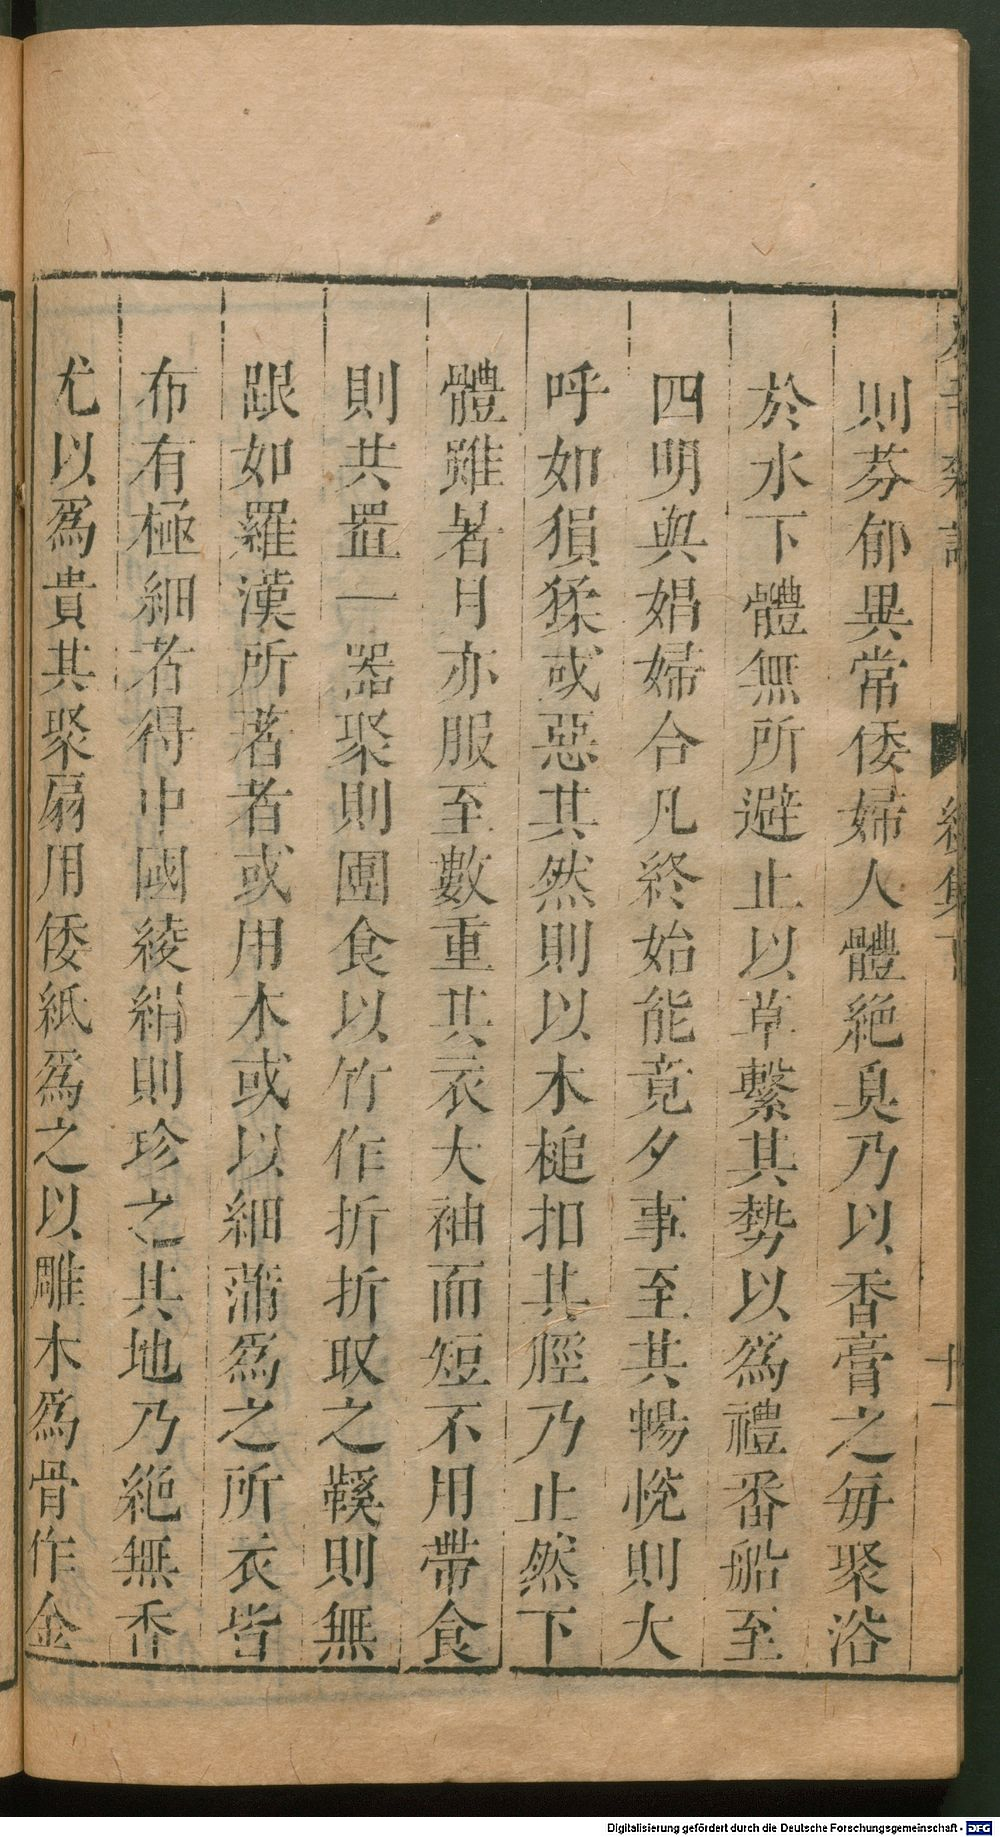 則芬郁異常倭婦人體絶臭乃以香膏之毎聚浴
於水下體無所避止以草繫其勢以爲禮番船至
四明與娼婦合凡終始能竟夕事至其暢悅則大
呼如狽猱或惡其然則以木槌扣其脛乃止然下
體雖暑月亦服至數重其衣大袖而短不用帶食
則共置一器聚則團食以竹作折折取之鞵則無
跟如羅漢所著者或用木或以細蒲爲之所衣皆
布有極細者得中國綾絹則珍之其地乃絶無香
尤以爲貴其聚扇用倭紙爲之以雕木爲骨作金
續集下
十一
Digitalisierung gefördert durch die Deutsche Forschungsgemeinschaft - DFG